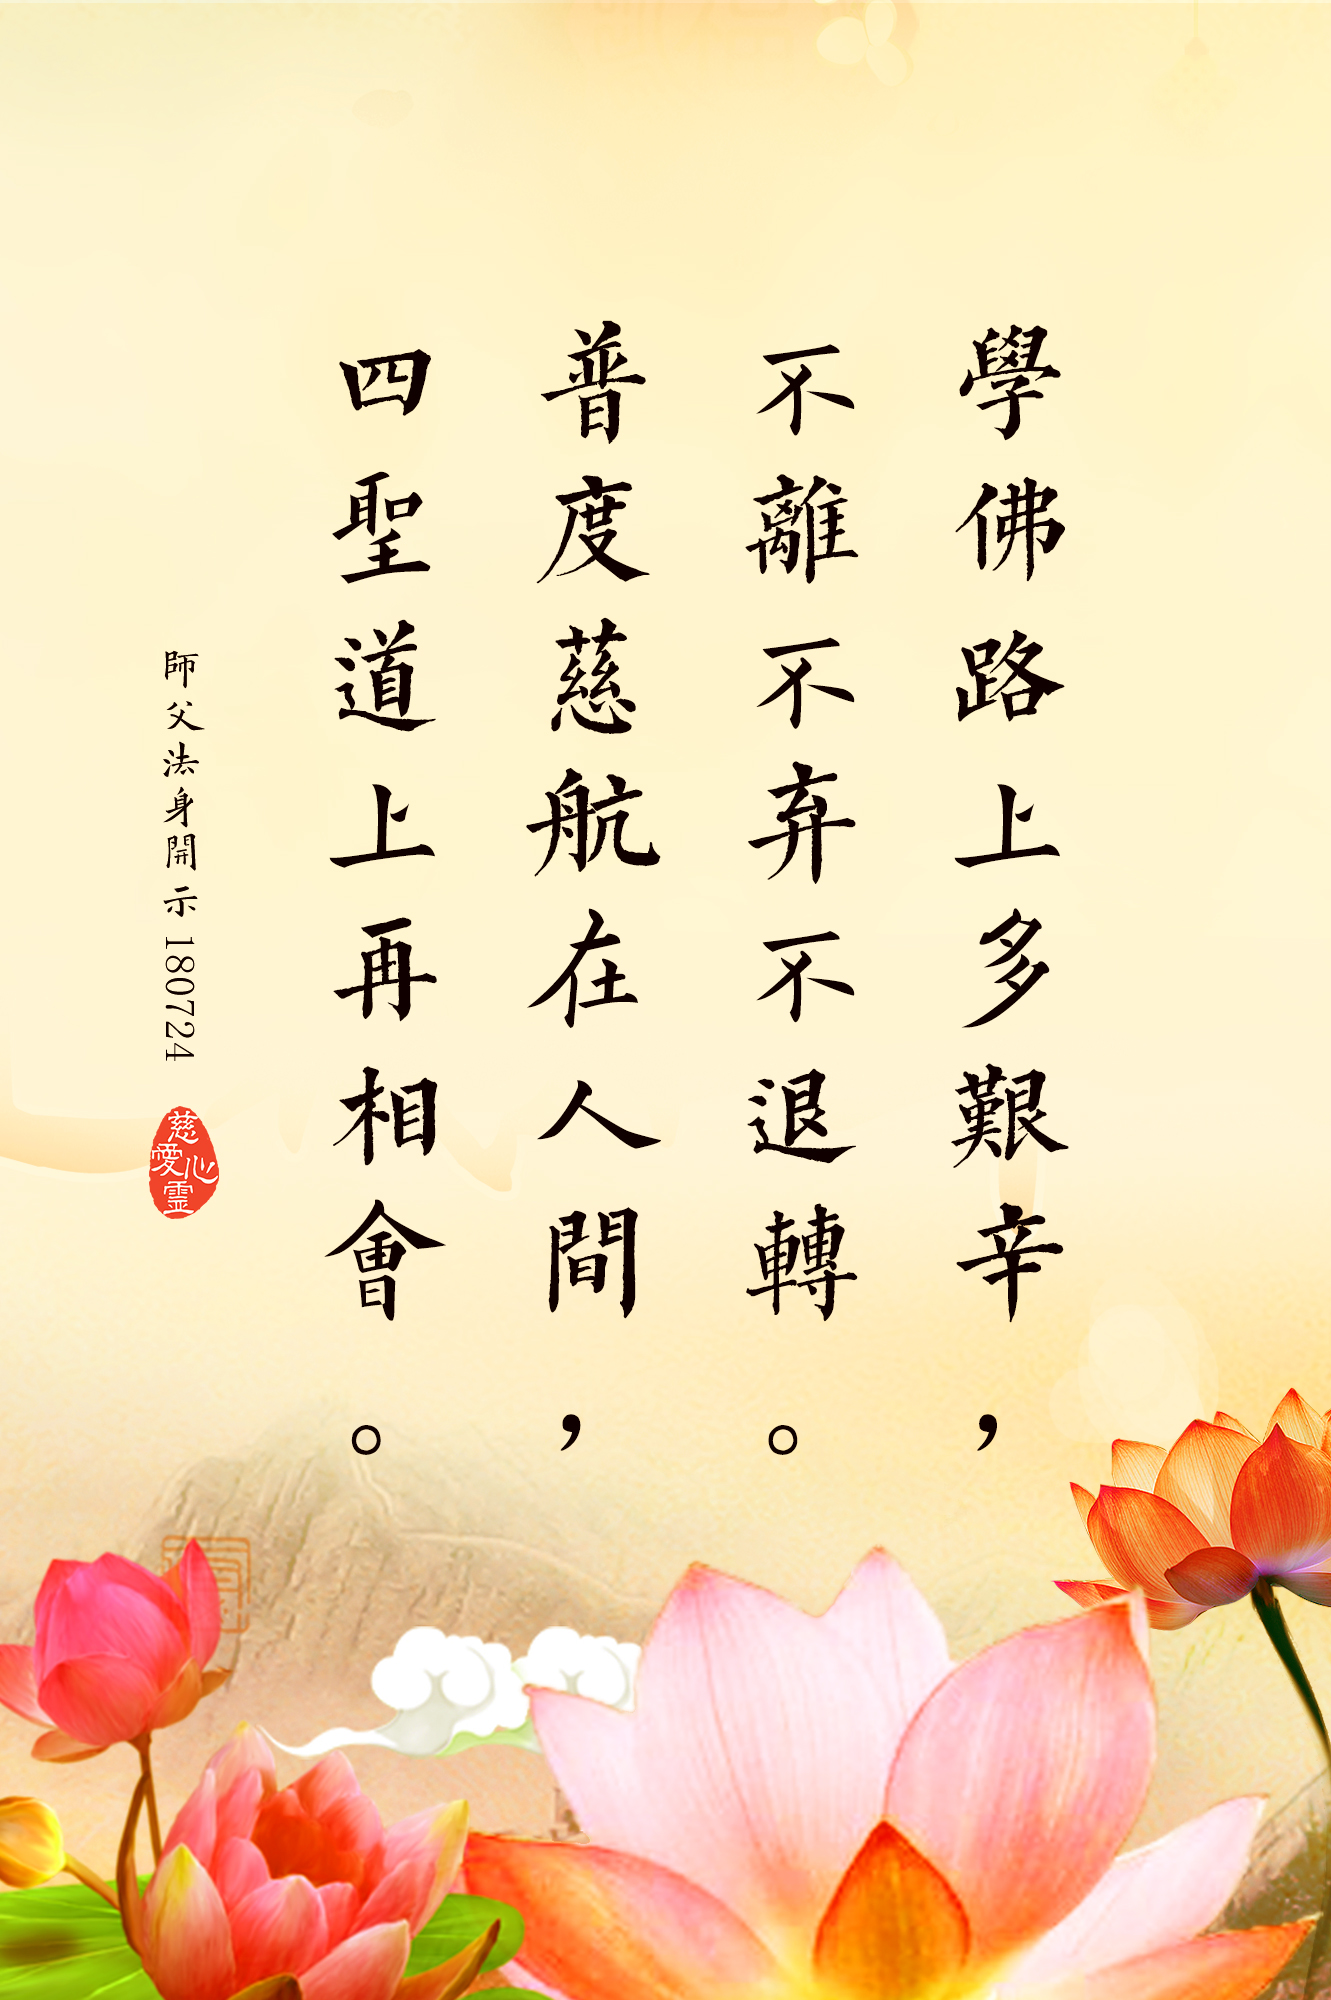 學佛路上多艱辛，
不離不弃不退轉。
普度慈航在人間，
四聖道上再相會。
師父法身開示 180724
慈心愛霊